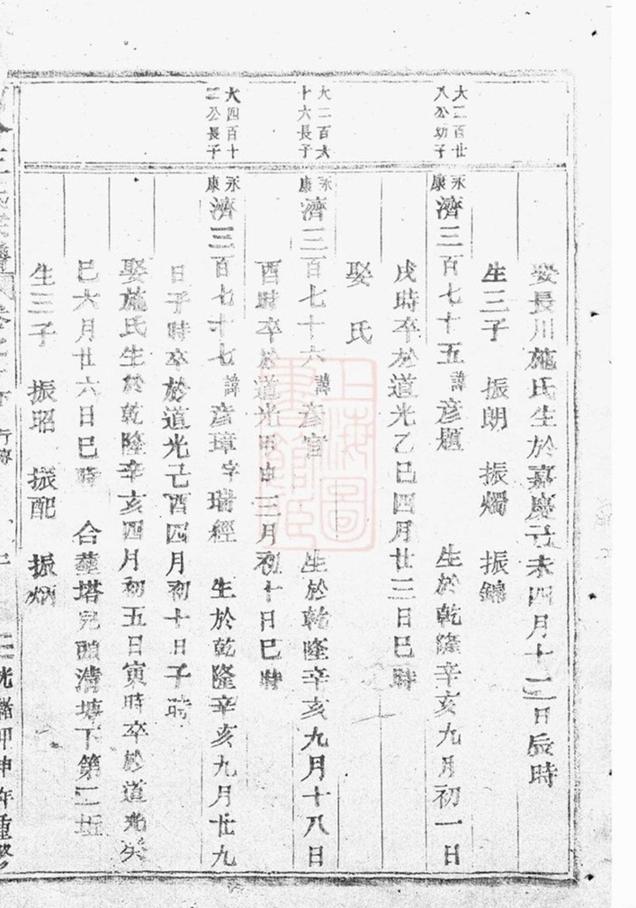 娶長川施氏生於嘉慶己未四月十二日辰時
生三子 振朗 振燭 振錦
大二百廿八公幼子
永康濟三百七十五諱彥題 生於乾隆辛亥九月初一日
戌時卒於道光乙巳四月廿三日巳時
娶 氏
大二百六十六長子
永康濟三百七十六諱彥官 生於乾隆辛亥九月十八日
酉時卒於道光甲申三月初十日巳時
大四百十二公長子
永康濟三百七十七諱彥璋字瑞經 生於乾隆辛亥九月廿九
日子時卒於道光己酉四月初十日子時
娶施氏生於乾隆辛亥四月初五日寅時卒於道光癸
巳六月廿六日巳時 合葬塔兒頭灣塘下第二坵
生三子 振昭 振配 振炳
光緒甲申年重修